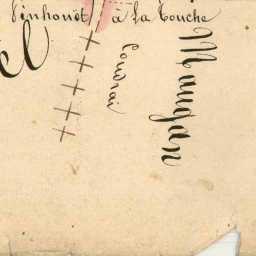 Pinhouët à la Touche
Coudrai
Maugan